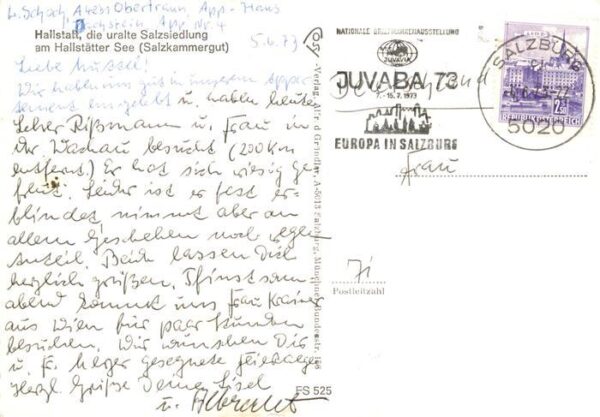 L. Schoch A4831 Obertraun, App-Haus
Dachstein, App. Nr. 4
Hallstatt, die uralte Salzsiedlung
am Hallstätter See (Salzkammergut)
5.6.73
Liebe
Wir haben uns gut in unserem Appar-
tement eingelebt u. haben heute
Lehrer Rißmann u. Frau in
der Wachau besucht (200 km
entfernt) Er hat sich riesig ge-
freut. Leider ist er fast er-
blindet nimmt aber an
allem Geschehen noch regen
Anteil. Beide lassen Dich
herzlich grüßen. Pfingstsonn-
abend kommt uns Frau Kaiser
aus Wien für paar Stunden
besuchen. Wir wünschen Dir
u. gesegnete Feiertage
Herzl. Grüße Deine Lisel
u. Albrecht
NATIONALE BRIEFMARKENAUSSTELLUNG
JUVAVIA
JUVABA 73
15. 7. 1973
EUROPA IN SALZBURG
SALZBURG
5020
REPUBLIK ÖSTERREICH
Frau
Postleitzahl
FS 525